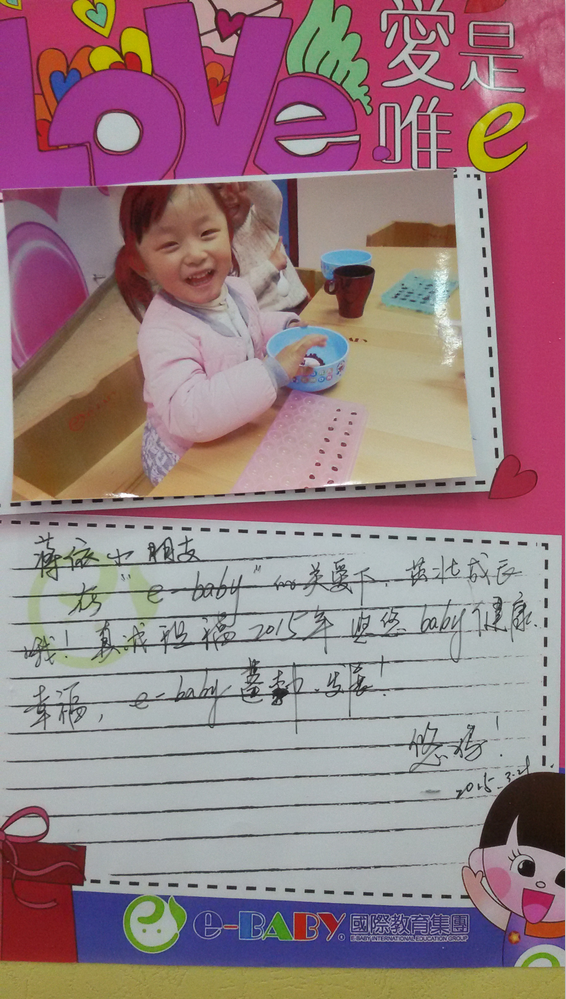 LOVe
愛是
唯e
蒋依小朋友
在"e-baby"的关爱下,茁壮成长
哦!真诚祝福2015年 baby健康
幸福,e-baby
2015.3.21.
e-BABY 國際教育集團
E-BABY INTERNATIONAL EDUCATION GROUP